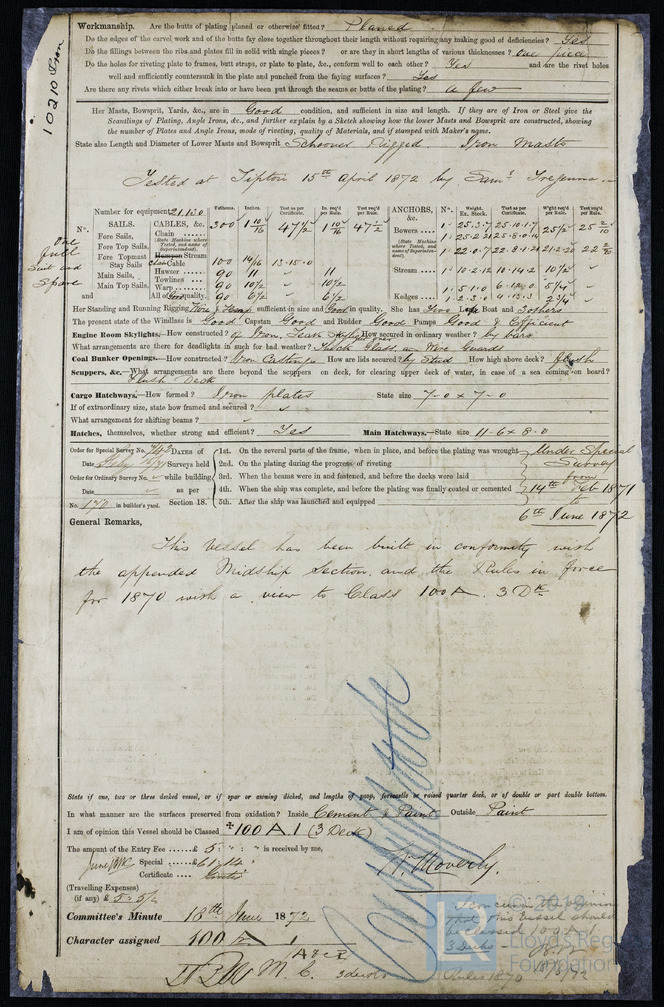 Workmanship. Are the butts of plating planed or otherwise fitted? Planed
Do the edges of the carvel work and of the butts fay close together throughout their length without requiring any making good of deficiencies? Yes
Do the fillings between the ribs and plates fill in solid with single pieces? or are they in short lengths of various thicknesses? One piece
Do the holes for riveting plate to frames, butt straps, or plate to plate, &c., conform well to each other? Yes and are the rivet holes
well and sufficiently countersunk in the plate and punched from the faying surfaces? Yes
Are there any rivets which either break into or have been put through the seams or butts of the plating? a few
10210 Iron
Her Masts, Bowsprit, Yards, &c., are in Good condition, and sufficient in size and length. If they are of Iron or Steel give the
Scantlings of Plating, Angle Irons, &c., and further explain by a Sketch showing how the lower Masts and Bowsprit are constructed, showing
the number of Plates and Angle Irons, mode of riveting, quality of Materials, and if stamped with Maker's name.
State also Length and Diameter of Lower Masts and Bowsprit Schooner Rigged. Iron Masts
Tested at Tipton 15th April 1872 by Saml
Number for equipment 21.130 Fathoms. Inches. Test as per Certificate. In. req'd per Rule. Test req'd per Rule. ANCHORS, &c. Nº. Weight. Ex. Stock. Test as per Certificate. W'ght req'd per Rule. Test req'd per Rule.
Nº. SAILS. CABLES, &c.
Fore Sails, Chain 300 1 10/16 47 1/2 1 10/16 47 1/2 Bowers
(State Machine where Tested, and name of Superintendent).
Fore Top Sails,
Fore Topmast Stay Sails Hempen Stream Chain Cable 100 14/16 13-15-0
Main Sails, Hawser 90 11 11 Stream 1 10-2-12 10-14-2 10 1/2
Main Top Sails, Towlines 90 10 1/2 10 1/2
Warp 90 6 1/2 6 1/2 Kedges
and All of Good quality.
One full Suit and Spare
Her Standing and Running Rigging Wire & Hemp sufficient in size and Good in quality. She has Two Life Boat and 3 others
The present state of the Windlass is Good Capstan Good and Rudder Good Pumps Good & Efficient
Engine Room Skylights.—How constructed? of Iron, Teak Skylights How secured in ordinary weather? by bars
What arrangements are there for deadlights in such for bad weather? Thick Glass in Wire Guards
Coal Bunker Openings.—How constructed? Iron Castings How are lids secured? by Stud How high above deck? flush
Scuppers, &c.—What arrangements are there beyond the scuppers, on deck, for clearing upper deck of water, in case of a sea coming on board?
Flush Deck
Cargo Hatchways.—How formed? Iron plates State size 7-0 x 7-0
If of extraordinary size, state how framed and secured?
What arrangement for shifting beams?
Hatches, themselves, whether strong and efficient? Yes Main Hatchways.—State size 11-6 x 8-0
Order for Special Survey No. 743 Date
Order for Ordinary Survey No. Date
No. 170 in builder's yard.
DATES of Surveys held while building as per Section 18.
1st. On the several parts of the frame, when in place, and before the plating was wrought
2nd. On the plating during the progress of riveting
3rd. When the beams were in and fastened, and before the decks were laid
4th. When the ship was complete, and before the plating was finally coated or cemented
5th. After the ship was launched and equipped
Under Special
Survey
from
14th Feb 1871
to
6th June 1872
General Remarks,
This Vessel has been built in conformity with
the appended Midship Section and the Rules in force
for 1870 with a view to Class 100 A. 3 Dk
State if one, two or three decked vessel, or if spar or awning decked, and lengths of poop, forecastle or raised quarter deck, or of double or part double bottom.
In what manner are the surfaces preserved from oxidation? Inside Cement & Paint Outside Paint
I am of opinion this Vessel should be Classed ✠ 100 A 1 (3 Deck)
The amount of the Entry Fee £ 5 : : is received by me,
Special £ 61.14
Certificate
(Travelling Expenses)
(if any) £
H. Moverly.
Committee's Minute 18th June 1872
Character assigned 100 A 1
M. C. 3 decks
I concur in the opinion
that this vessel should
be classed 100 A 1
3 Decks
Rules 1870
18/6/72
LR
© 2018
Lloyd's Register
Foundation